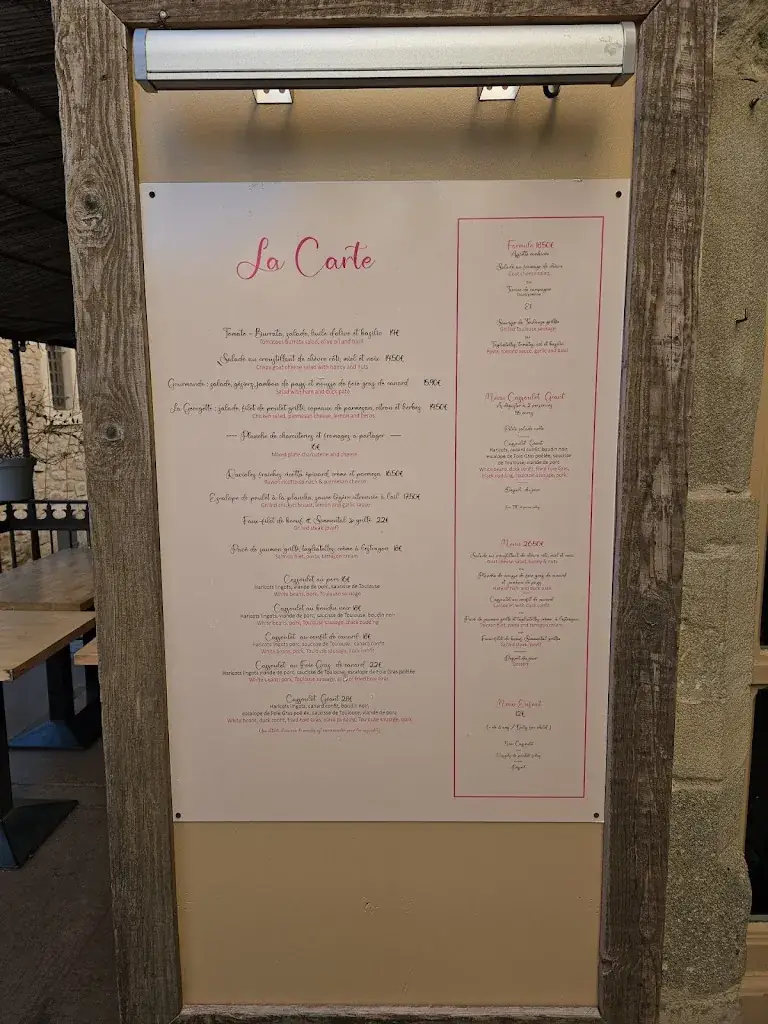 La Carte
Tomate - Burrata, salade, huile d'olive et basilic
Tomatoes burrata salad, olive oil and basil
Salade au croustillant de chèvre rôti, miel et noix 14.50€
Crispy goat cheese salad with honey and nuts
Gourmande : salade, gésiers, jambon de pays et mousse de foie gras de canard 15.90€
salade, filet de poulet grillé, copeaux de parmesan, citron et herbes 14.50€
Chicken salad, parmesan cheese, lemon and herbs
Planche de charcuteries et fromages à partager
16€
Mixed plate charcuterie and cheese
Ravioles fraîches ricotta épinard, crème et parmesan 16.50€
Escalope de poulet à la plancha, sauce légère citronnée à l'ail 17.50€
Grilled chicken breast, lemon and garlic sauce
Faux-filet de boeuf « Simmental » grillé 22€
Grilled steak (beef)
Pavé de saumon grillé, tagliatelles, crème à l'estragon 18€
Salmon filet, pasta, tarragon cream
Cassoulet au porc 16€
Haricots lingots, viande de porc, saucisse de Toulouse
White beans, pork, Toulouse sausage
Cassoulet au boudin noir 18€
Haricots lingots, viande de porc, saucisse de Toulouse, boudin noir
White beans, pork, Toulouse sausage, black pudding
Cassoulet au confit de canard 18€
Haricots lingots porc, saucisse de Toulouse, canard confit
White beans, pork, Toulouse sausage, duck confit
Cassoulet au Foie Gras de canard 22€
Haricots lingots, viande de porc, saucisse de Toulouse, escalope de Foie Gras poêlée
White beans, pork, Toulouse sausage,
Cassoulet Géant 28€
Haricots lingots, canard confit, boudin noir,
escalope de Foie Gras poêlée, saucisse de Toulouse, viande de porc
White beans, duck confit, fried Foie Gras, black pudding, Toulouse sausage, pork
Formule 18.50€
Salade au fromage de chèvre
Goat cheese salad
ou
Terrine de campagne
Et
Saucisse de Toulouse grillée
Grilled Toulouse sausage
ou
Tagliatelles, tomates, ail et basilic
Pasta, tomato sauce, garlic and basil
Menu Cassoulet Géant
Petite salade verte
Cassoulet Géant
Haricots, canard confit, boudin noir,
escalope de Foie Gras poêlée, saucisse
de Toulouse, viande de porc
Dessert du jour
Menu 26.50€
Salade au croustillant de chèvre rôti, miel et noix
Goat cheese salad, honey & nuts
Planche de mousse de foie gras de canard
et jambon de pays
Cassoulet au confit de canard
Cassoulet with duck confit
Pavé de saumon grillé et tagliatelles, crème à l'estragon
Faux-filet de boeuf Simmental grillé
Grilled steak (beef)
Dessert du jour
Dessert
Menu Enfant
12€